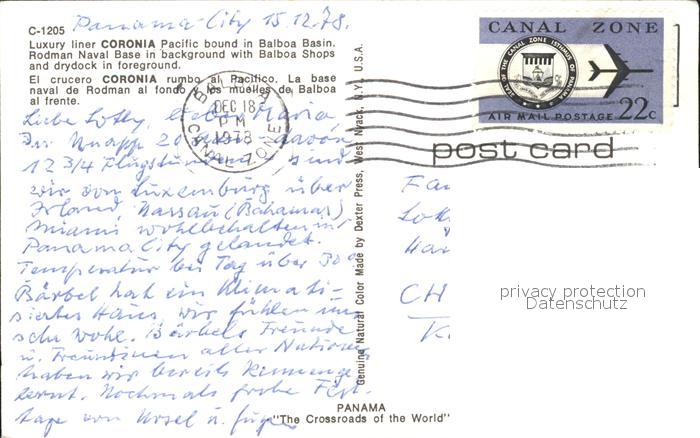 Panama-City 15.12.78.
C-1205
Luxury liner CORONIA Pacific bound in Balboa Basin.
Rodman Naval Base in background with Balboa Shops
and drydock in foreground.
El crucero CORONIA rumbo al Pacífico. La base
naval de Rodman al fondo y los muelles de Balboa
al frente.
Liebe Lotty, liebe Maria,
In knapp 20 Std. davon
12 3/4 Flugstunden sind
wir von Luxemburg über
Irland, Nassau (Bahamas)
Miami wohlbehalten in
Panama City gelandet.
Temperatur bei Tag über 30°
Bärbel hat ein klimati-
siertes Haus, wir fühlen uns
sehr wohl. Bärbels Freunde
u. Freundinnen aller Nationen
haben wir bereits kennenge-
lernt. Nochmals frohe Fest-
tage von Ursel u.
DEC 18
PM
1978
CANAL ZONE
CANAL ZONE
SEAL OF THE CANAL ZONE ISTHMUS OF PANAMA
AIR MAIL POSTAGE 22c
post card
Genuine Natural Color Made by Dexter Press, West Nyack, N.Y., U.S.A.
Lott
CH
privacy protection
Datenschutz
PANAMA
"The Crossroads of the World"